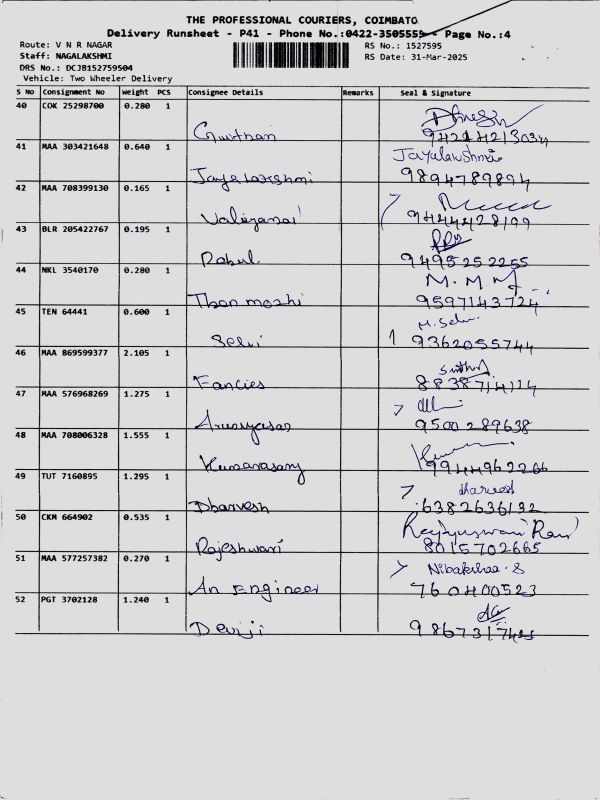 THE PROFESSIONAL COURIERS, COIMBATO
Delivery Runsheet - P41 - Phone No.:0422-3505555 - Page No.:4
Route: V N R NAGAR RS No.: 1527595
Staff: NAGALAKSHMI RS Date: 31-Mar-2025
DRS No.: DCJB152759504
Vehicle: Two Wheeler Delivery
S No Consignment No Weight PCS Consignee Details Remarks Seal & Signature
40 COK 25298700 0.280 1
Gowthan
41 MAA 303421648 0.640 1 Jayalakshmi
Jayalakshmi 9894789894
42 MAA 708399130 0.165 1
Valliyanai 9444428199
43 BLR 205422767 0.195 1
Rahul 9495252255
44 NKL 3540170 0.280 1 M. M
Then mozhi 9597143724
45 TEN 64441 0.600 1 M. Selvi
Selvi 9362055744
46 MAA 869599377 2.105 1
Fancies 8838714114
47 MAA 576968269 1.275 1
9500289638
48 MAA 708006328 1.555 1
Kumarasamy 9944962266
49 TUT 7160895 1.295 1 dharvesh
Dharvesh 6382636132
50 CKM 664902 0.535 1
Rajeshwari 8015702665
51 MAA 577257382 0.270 1 Nibakshaa.S
An Engineer 760400523
52 PGT 3702128 1.240 1
Devji